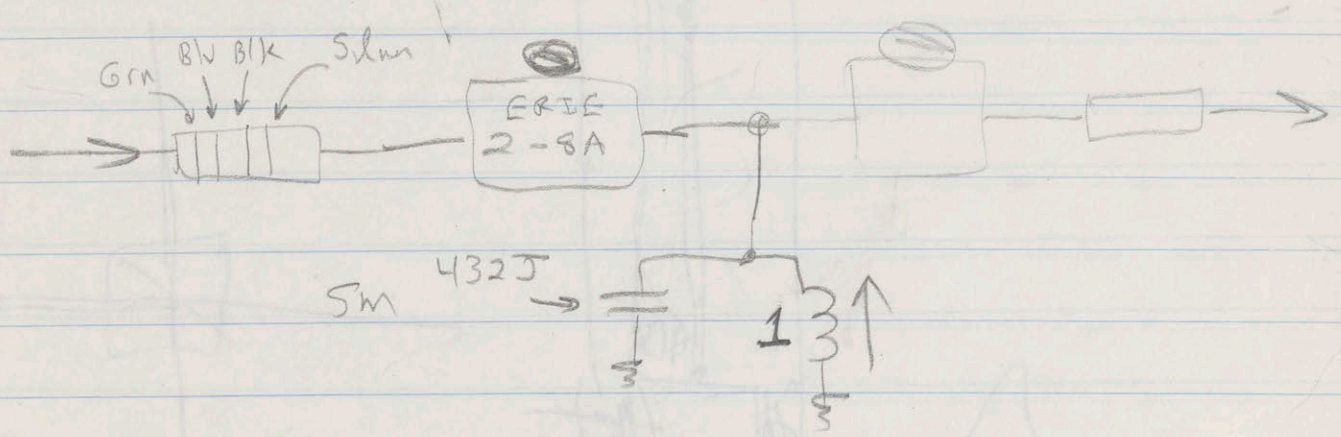 Grn Blu Blk Silver
ERIE
2-8A
432J
SM
1